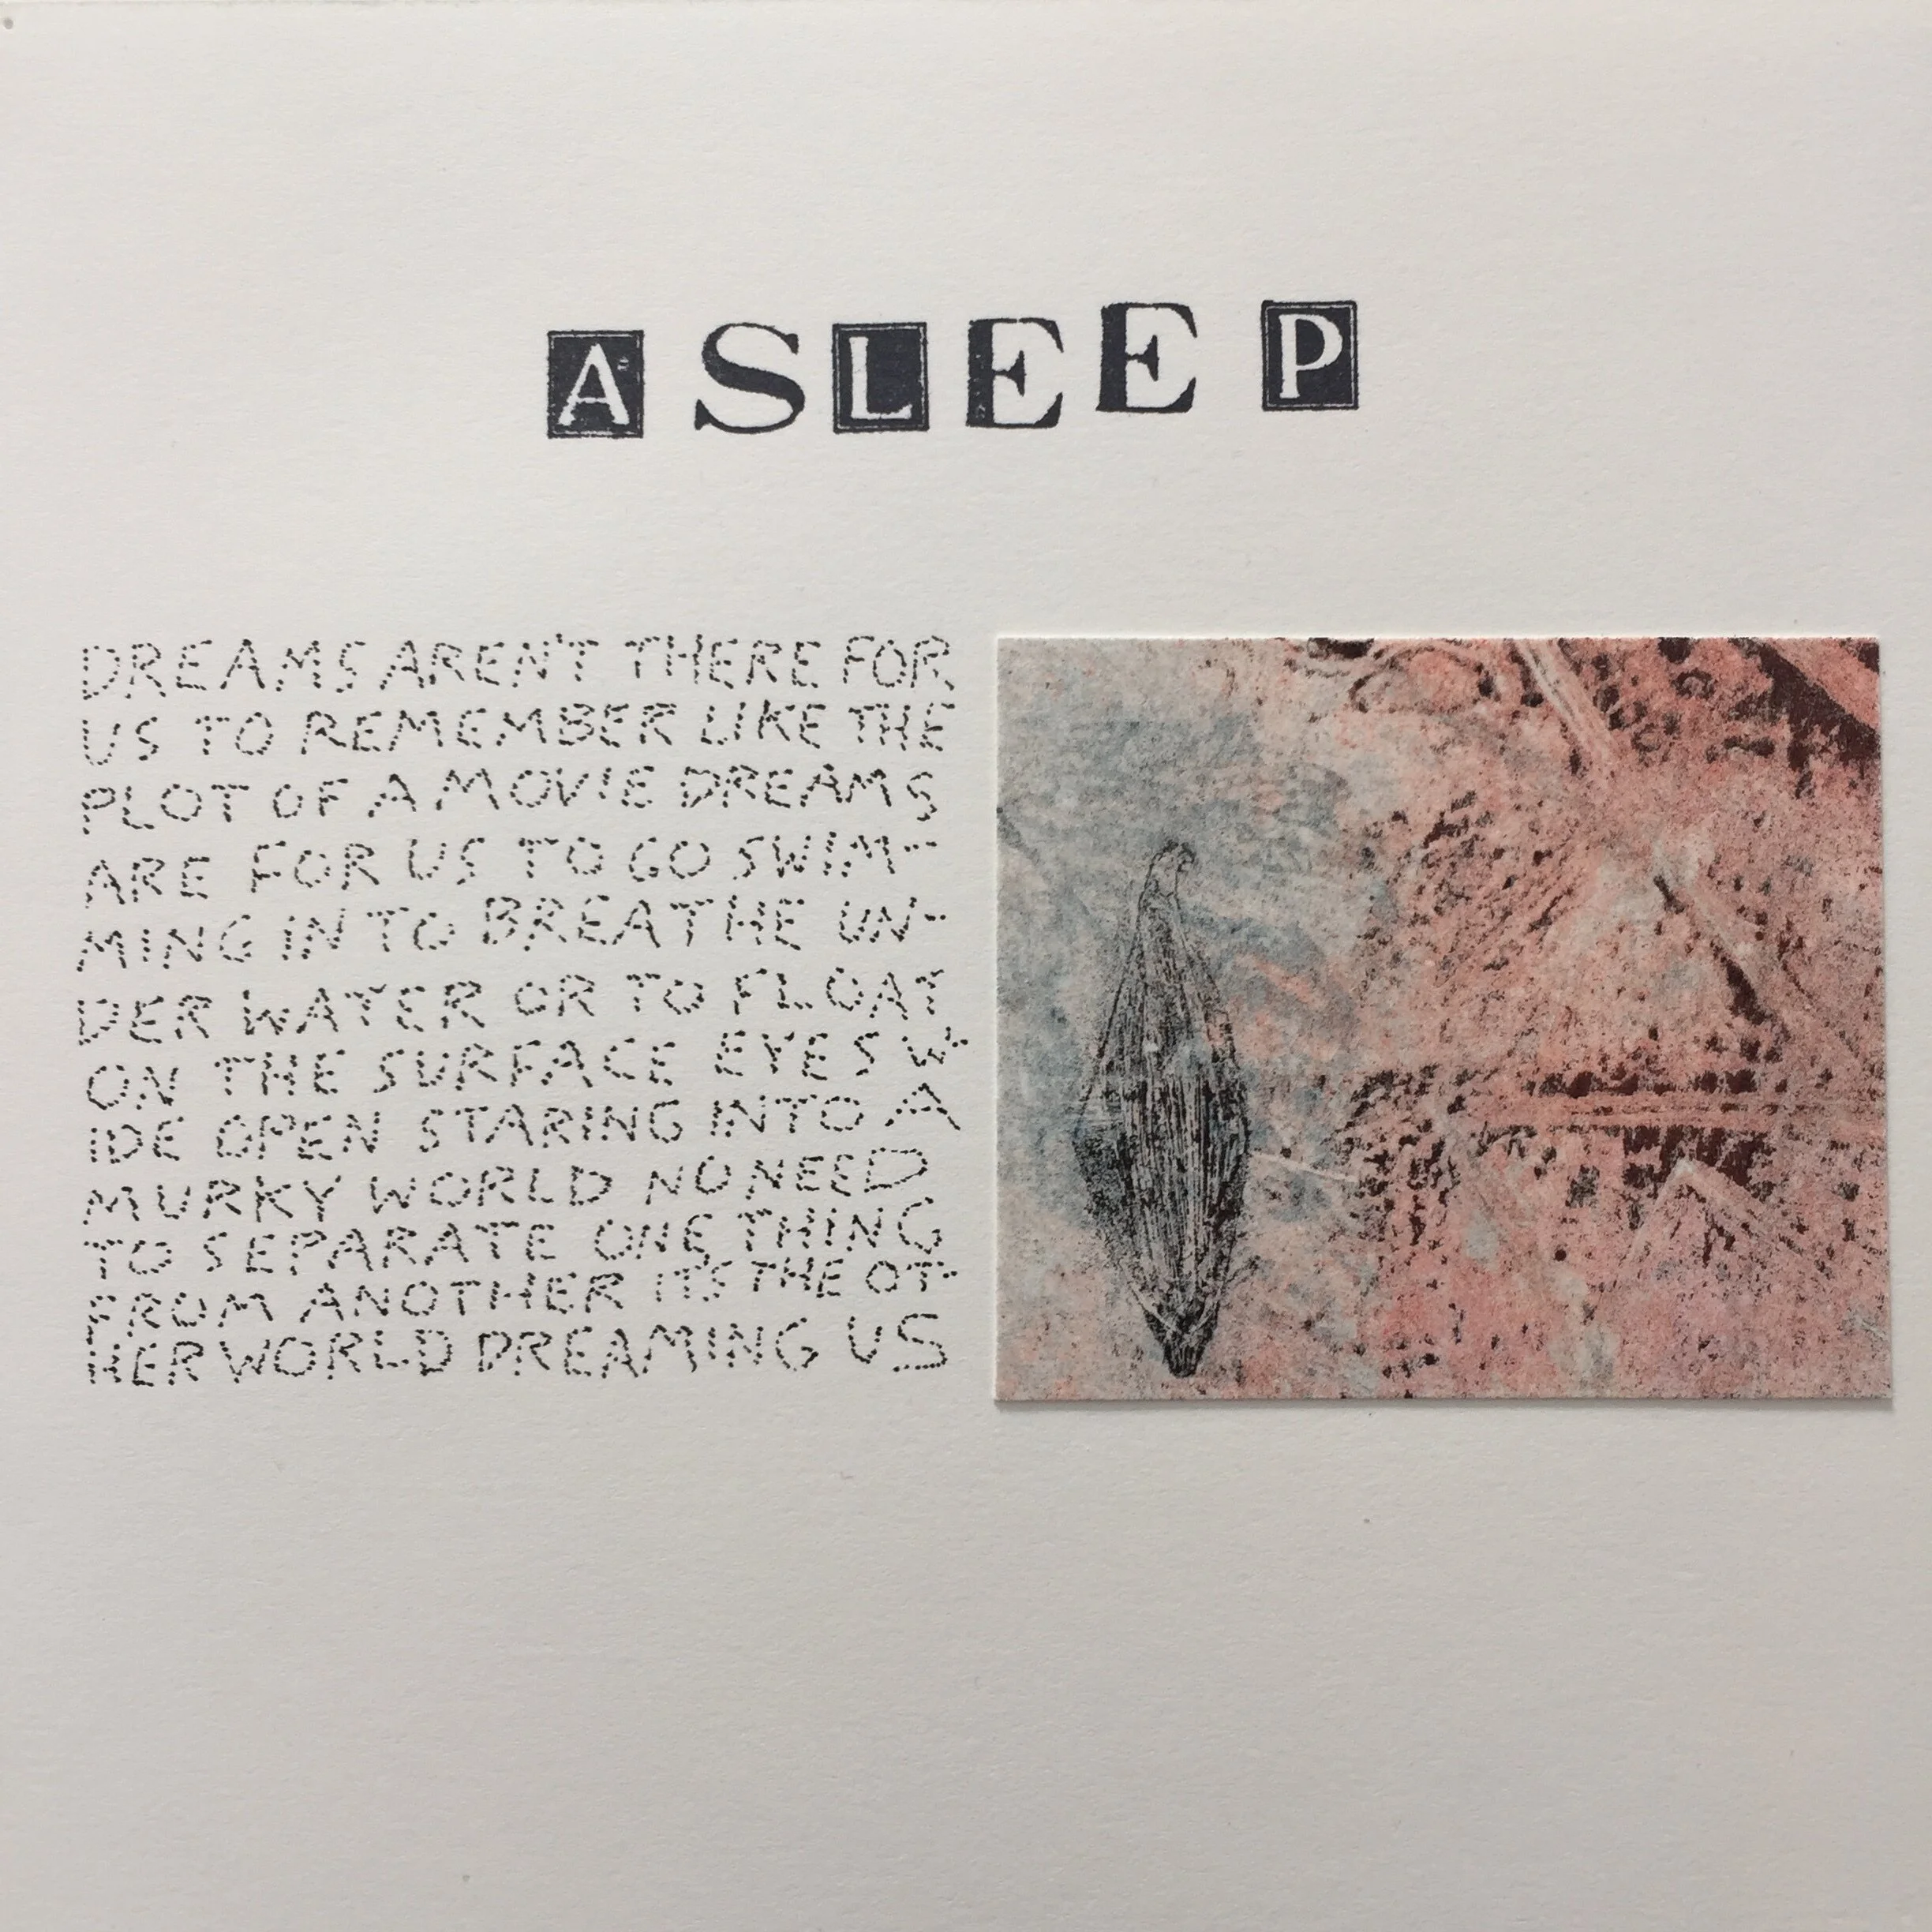 ASLEEP
DREAMS AREN'T THERE FOR
US TO REMEMBER LIKE THE
PLOT OF A MOVIE DREAMS
ARE FOR US TO GO SWIM-
MING IN TO BREATHE UN-
DER WATER OR TO FLOAT
ON THE SURFACE EYES W-
IDE OPEN STARING INTO A
MURKY WORLD NO NEED
TO SEPARATE ONE THING
FROM ANOTHER ITS THE OT-
HER WORLD DREAMING US